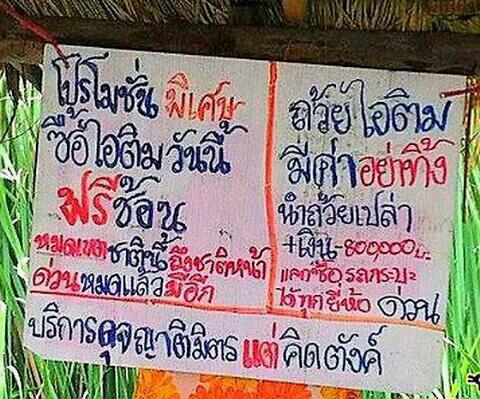 โปรโมชั่น พิเศษ
ซื้อไอติมวันนี้
ฟรีช้อน
หมดเขตชาตินี้ถึงชาติหน้า
ด่วนหมดแล้วมีอีก
ถ้วยไอติม
มีค่าอย่าทิ้ง
นำถ้วยเปล่า
+เงิน-800,000บ.
แลกซื้อรถกระบะ
ได้ทุกยี่ห้อ ด่วน
บริการดุจญาติมิตรแต่คิดตังค์